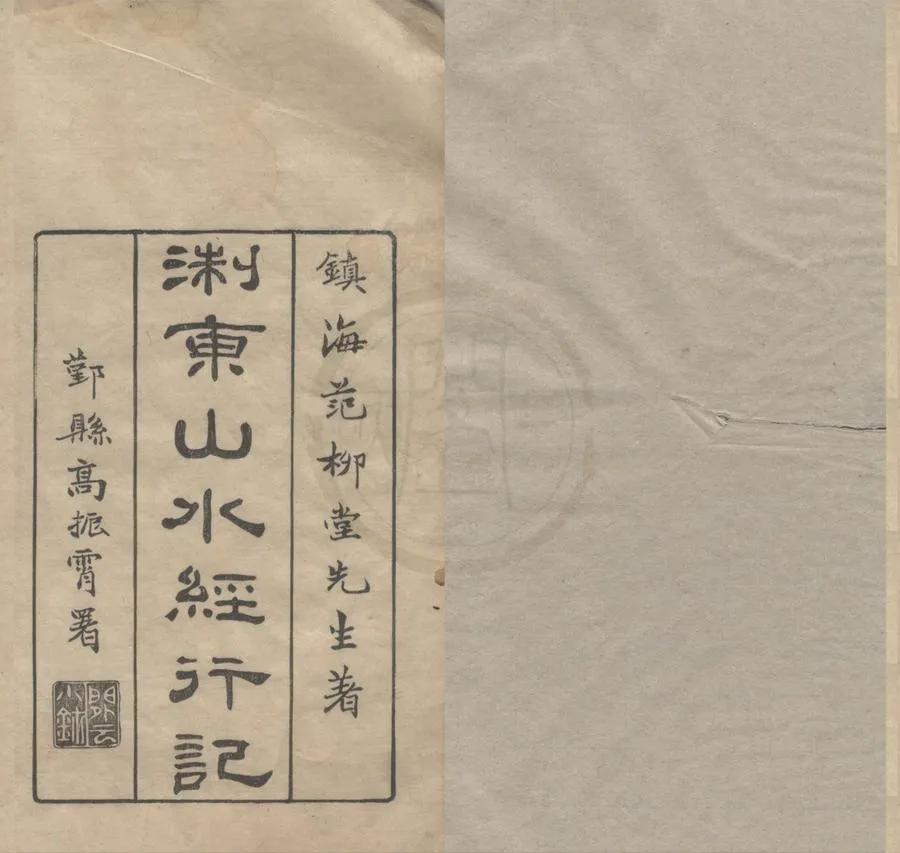 鎮海范柳堂先生著
淛東山水經行記
鄞縣高振霄署
閒云小鉥